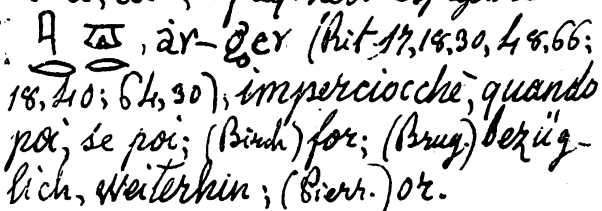 𓇋𓂋 𓎼𓂋, ȧr-ger (Rit. 17,18,30, 48,66;
18,40; 64,30), imperciocchè, quando
poi, se poi; (Birch) for; (Brug.) bezüg-
lich, weiterhin; (Pierr.) or.